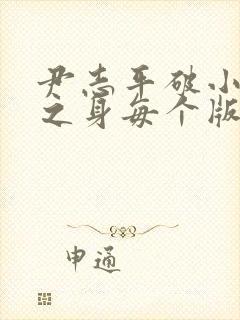 尹志平破小
之身每个版
申通